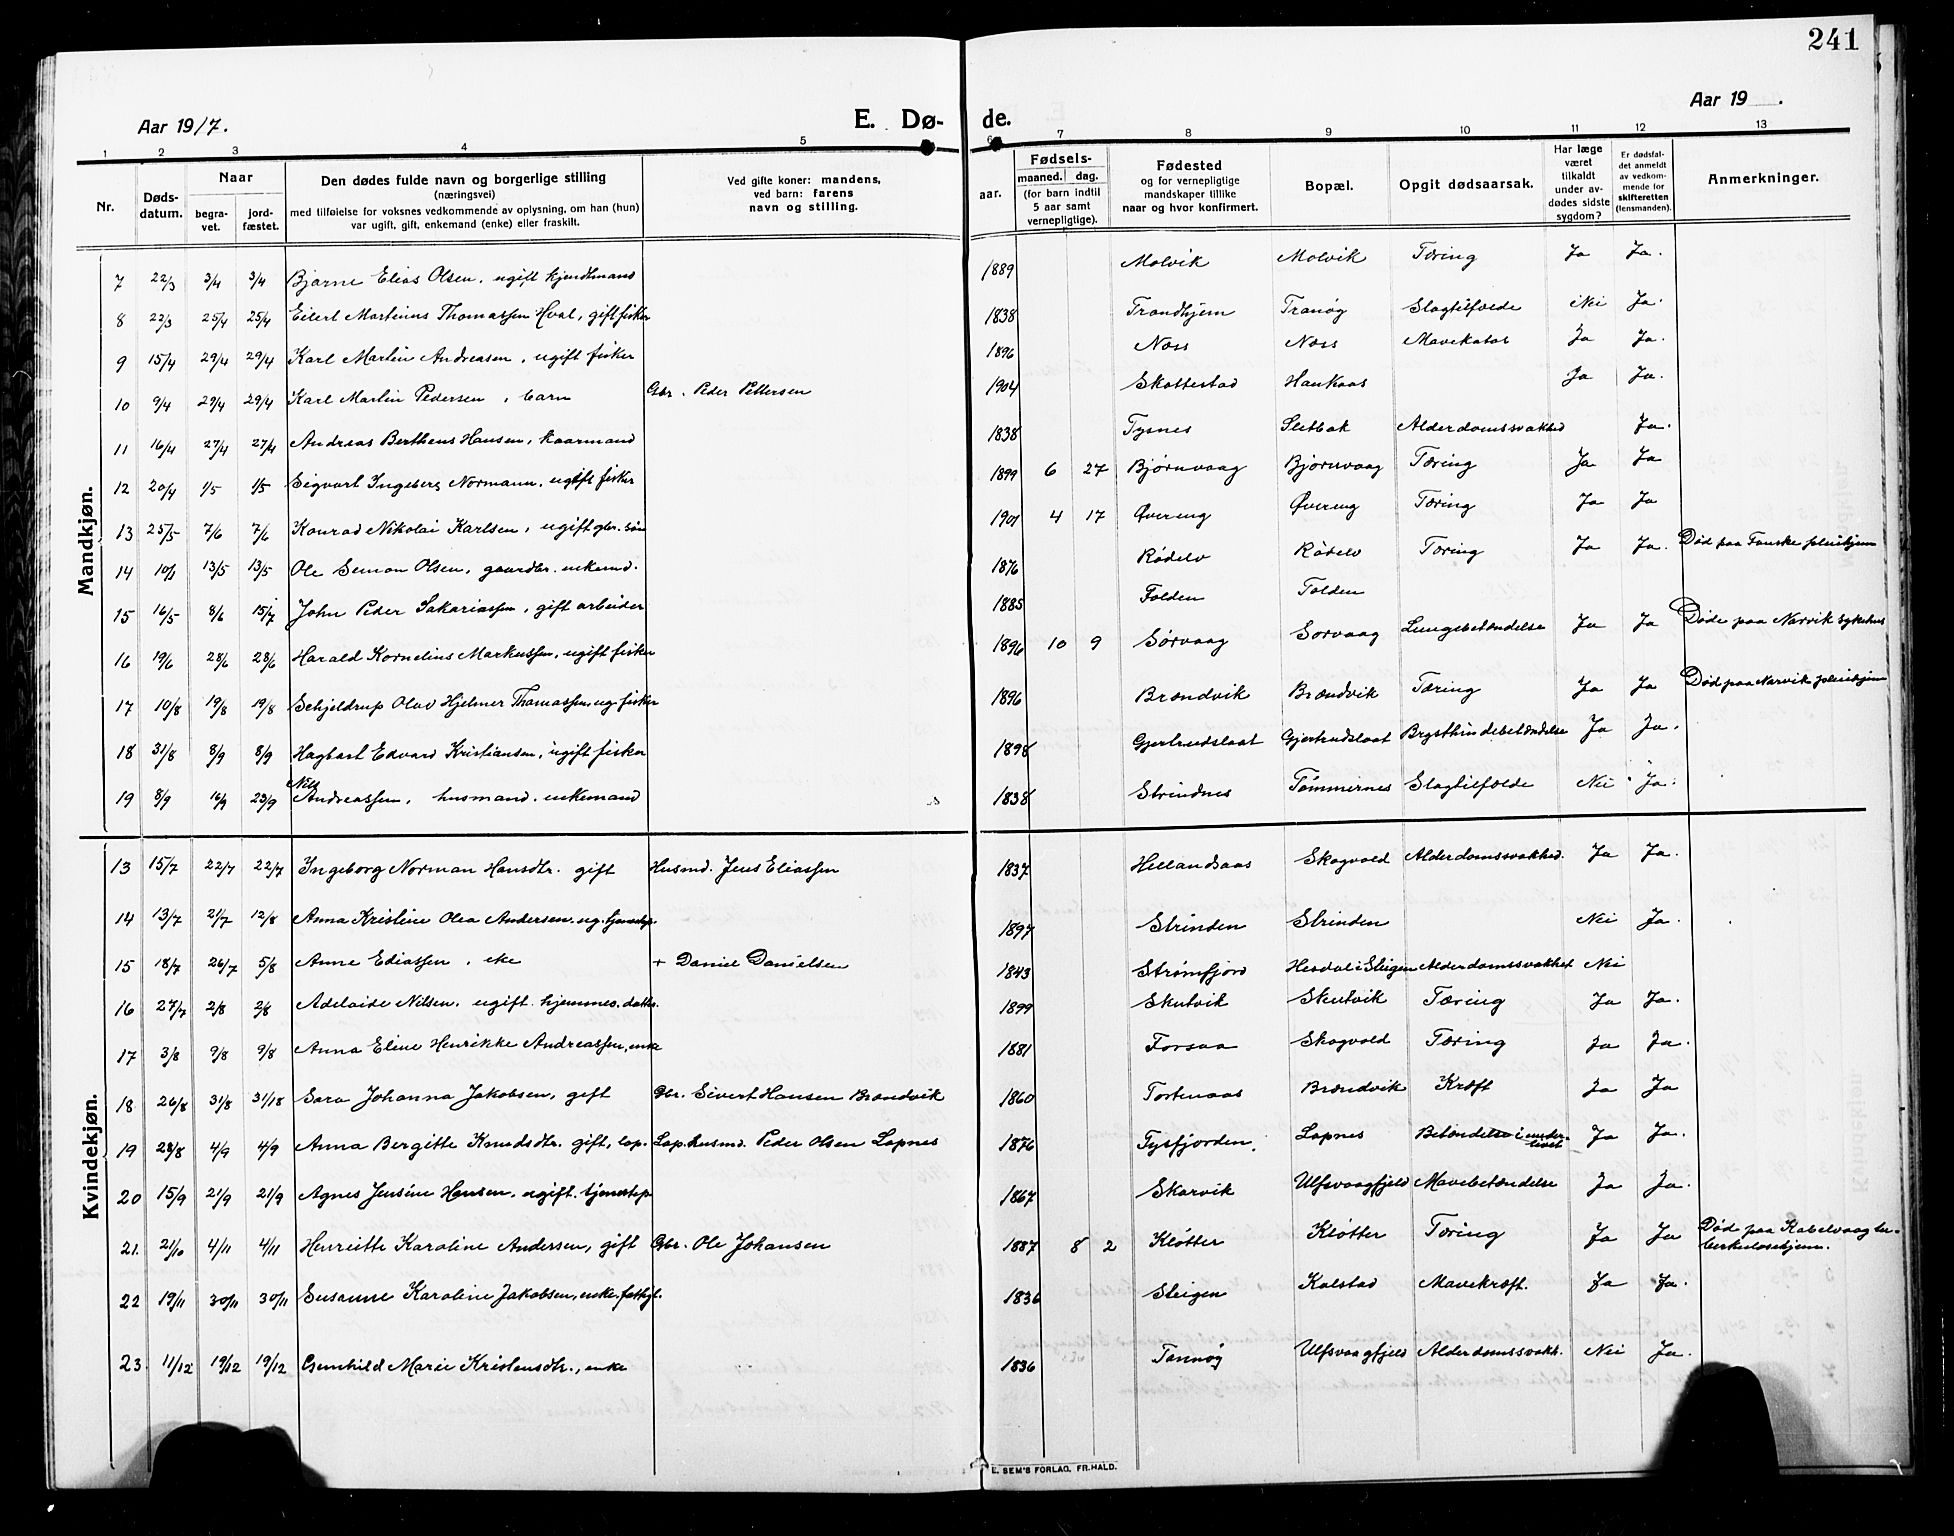 241
Aar 1917. E. Dø- de. Aar 19 .
1 2 3 4 5 6 7 8 9 10 11 12 13
Nr. Døds-datum. Naar begra-vet. jord-fæstet. Den dødes fulde navn og borgerlige stilling (næringsvei) med tilføielse for voksnes vedkommende av oplysning, om han (hun) var ugift, gift, enkemand (enke) eller fraskilt. Ved gifte koner: mandens, ved barn: farens navn og stilling. Fødsels- aar. maaned. dag. (for barn indtil 5 aar samt vernepligtige). Fødested og for vernepligtige mandskaper tillike naar og hvor konfirmert. Bopæl. Opgit dødsaarsak. Har læge været tilkaldt under av-dødes sidste sygdom? Er dødsfal-det anmeldt av vedkom-mende for skifteretten (lensmanden). Anmerkninger.
Mandkjøn.
7 22/3 3/4 3/4 Bjarne Elias Olsen, ugift 1889 Molvik Molvik Tæring Ja Ja.
8 22/3 25/4 25/4 Eilert Martinus Thomassen Hval, gift fisker 1838 Trondhjem Tranøy Slagtilfælde Nei Ja.
9 15/4 29/4 29/4 Karl Martin Andreasen, ugift fisker 1896 Næss Næss Mavekatar Ja Ja.
10 9/4 29/4 29/4 Karl Martin Pedersen, barn Gbr. Peder Pettersen 1904 Skottestad Haukaas Ja Ja.
11 16/4 27/4 27/4 Andreas Berthens Hansen, kaarmand 1838 Tysnes Sletbak Alderdomssvakhed Ja.
12 20/4 1/5 1/5 Sigvart Ingeberg Normann, ugift fisker 1899 6 27 Bjørnvaag Bjørnvaag Tæring Ja Ja
13 25/5 7/6 7/6 Konrad Nikolai Karlsen, ugift gbr. søn 1901 4 17 Øvereng Øvereng Tæring Ja Ja
14 10/1 13/5 13/5 Ole Simon Olsen, gaardbr. enkemd. 1876 Rødelv Rødelv Tæring Ja Ja. Død paa Fauske pleiehjem
15 16/5 8/6 15/7 John Peder Sakariassen, gift arbeider 1885 Folden Folden
16 19/6 28/6 28/6 Harald Kornelius Markussen, ugift fisker 1896 10 9 Sørvaag Sørvaag Lungebetændelse Ja Ja Døde paa Narvik sykehus
17 10/8 19/8 19/8 Schjeldrup Olav Hjelmer Thomassen, ug. fisker 1896 Brændvik Brændvik Tæring Ja Ja Død paa Narvik pleiehjem
18 31/8 8/9 8/9 Hagbart Edvard Kristiansen, ugift fisker 1898 Gjertrudslaat Gjertrudslaat Brysthindebetændelse Ja Ja.
19 8/9 16/9 23/9 Nils Andreassen, husmand. enkemand 1838 Strindnes Tømmernes Slagtilfælde Nei Ja.
Kvindekjøn.
13 15/7 22/7 22/7 Ingeborg Norman Hansdtr. gift Husmd. Jens Eliassen 1837 Hellandsaas Skogvold Alderdomssvakhed. Ja Ja.
14 13/7 21/7 12/8 Anna Kristine Olea Andersen, ug. tjenestep. 1897 Strinden Strinden Nei Ja.
15 18/7 26/7 5/8 Anne Ediassen, eke + Daniel Danielsen 1843 Strømfjord Hesdal i Steigen Alderdomssvakhet Nei
16 27/7 2/8 2/8 Adelaide Nilsen, ugift. hjemmev. datter. 1899 Skutvik Skutvik Tæring Ja Ja.
17 3/8 9/8 9/8 Anna Eline Henrikke Andreassen, enke 1881 Forsaa Skogvold Tæring Ja Ja.
18 26/8 31/8 31/8 Sara Johanna Jakobsen, gift Gbr. Sivert Hansen Brændvik 1860 Tortenaas Brændvik Kræft Ja Ja
19 28/8 4/9 4/9 Anna Bergitte Knudsdtr. gift, lap. Lap. husmd. Peder Olsen Lapnes 1876 Tysfjorden. Lapnes Betændelse i underlivet Ja Ja.
20 15/9 21/9 21/9 Agnes Jensine Hansen, ugift. tjenestep. 1867 Skarvik Ulfsvaagfjeld Mavebetændelse Ja Ja.
21. 21/10 4/11 4/11 Henriette Karoline Andersen, gift Gbr. Ole Johansen 1887 8 2 Kløtter Kløtter Tæring Ja Ja Død paa Kabelvaag tu-berkulosehjem.
22 19/11 30/11 30/11 Susanne Karoline Jakobsen, enke. fattigl. 1836 Steigen Kalstad Mavekræft. Ja Ja.
23. 11/12 19/12 19/12 Gunhild Marie Kristensdtr., enke 1836 Tannøy Ulfsvaagfjeld Alderdomssvakh. Nei Ja.
E. SEM'S FORLAG, FR.HALD.